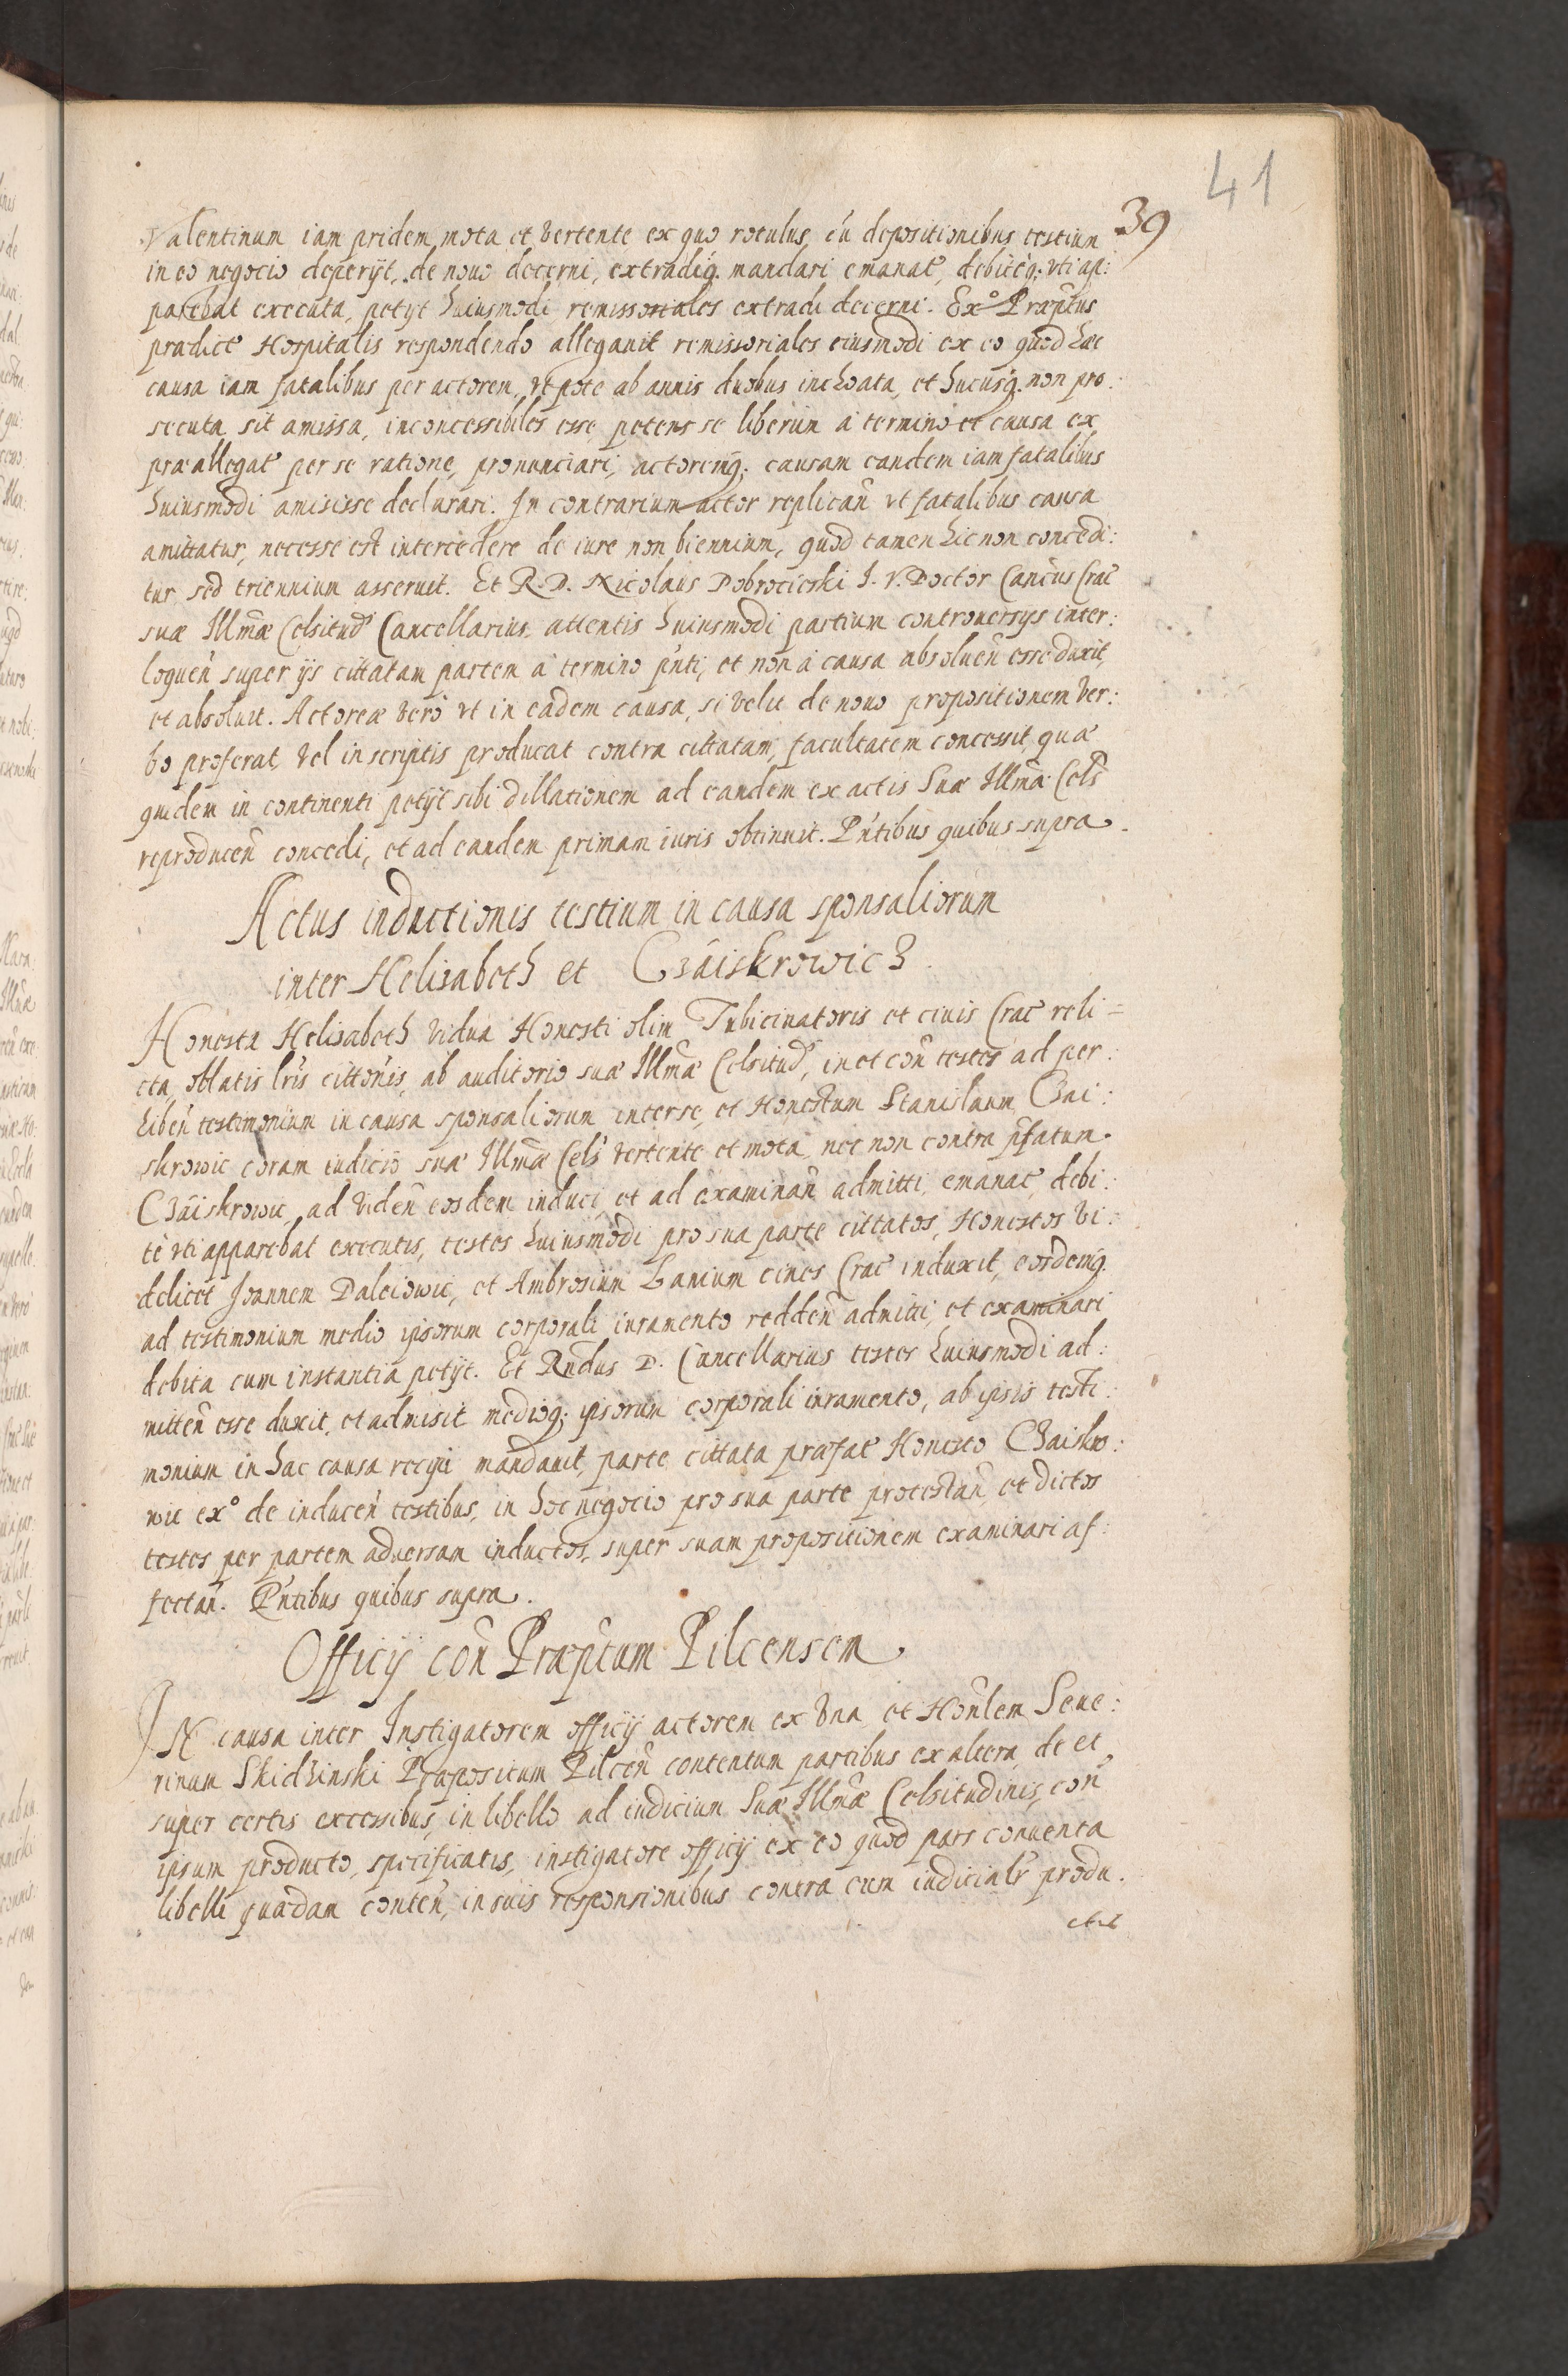 41
39
Valentinum iam pridem mota et vertente ex quo rotulus cũ depositionibus testium
in eo negocio deperijt, de nouo decerni, extradiq. mandari emanat̃, debitèq. vti ap:
parebat executa, petijt huiusmodi remissoriales extradi decerni. Exº Præpt̃us
prædict̃ Hospitalis respondendo allegauit remissoriales eiusmodi ex eo quod hæc
causa iam fatalibus per actorem, vt pote ab annis duobus inchoata, et hucusq. non pro:
secuta sit amissa, inconcessibiles esse petens se liberum à termino et causa ex
præallegat̃ per se ratione, pronunciari, actoremq. causam eandem iam fatalibus
huiusmodi amisisse declarari. In contrarium actor replicañ vt fatalibus causa
amittatur, necesse est intercedere de iure non biennium, quod tamen hic non concedi:
tur sed triennium asseruit. Et R. D. Nicolaus Dobrocieski I. V. Doctor Cancus Crac̃
suæ Illm̃æ Celsitud̃ Cancellarius, attentis huiusmodi partium controuersijs inter:
loqueñ super ijs cittatam partem à termino pñti, et non à causa absolueñ esse duxit,
et absoluit. Actoreæ verò vt in eadem causa, si velit de nouo propositionem ver:
bo proferat, vel in scriptis producat contra cittatam, facultatem concessit, quæ
quidem in continenti petijt sibi dillationem ad eandem ex actis Suæ Illm̃æ Cels̃
reproduceñ concedi, et ad eandem primam iuris obtinuit. Pñtibus quibus supra.
Actus inductionis testium in causa sponsaliorum
inter Helisabeth et Czaiskrowicz.
Honesta Helisabeth vidua Honesti olim Tubicinatoris et ciuis Crac̃ reli=
cta, oblatis lr̃is cittoñis, ab auditorio suæ Illm̃æ Celsitud̃, in et coñ testes ad per:
hibeñ testimonium in causa sponsaliorum inter se, et Honestum Stanislaum Czai:
skrowic coram iudicio suæ Illm̃æ Cels̃ vertente et mota, nec non contra p̃fatum
Czaiskrowic, ad videñ eosdem induci et ad examinañ admitti, emanat̃, debi:
tè vti apparebat executis, testes huiusmodi pro sua parte cittatos, Honestos vi:
delicet Joannem Dalciowic, et Ambrosium Lanium ciues Crac̃ induxit, eosdemq.
ad testimonium medio ipsorum corporali iuramento reddeñ admitti, et examinari
debita cum instantia petijt. Et Rñdus D. Cancellarius testes huiusmodi ad:
mitteñ esse duxit, et admisit medioq. ipsorum corporali iuramento, ab ipsis testi:
monium in hac causa recipi mandauit, parte cittata præfat̃ Honesto Czaiskro:
wic exº de induceñ testibus, in hoc negocio pro sua parte protestañ, et dictos
testes per partem aduersam inductos, super suam propositionem examinari af:
fectañ. Pñtibus quibus supra.
Officij coñ Præpt̃um Pilcensem
IN causa inter Instigatorem officij actorem ex vna et Honlem Seue:
rinum Skidzinski Præpositum Pilceñ contentum partibus ex altera, de et
super certis excessibus, in libello ad iudicium Suæ Illm̃æ Celsitudinis, coñ
ipsum producto, specificatis, instigatore officij ex eo quod pars conuenta
libelli quædam conteñ, in suis responsionibus contra eum iudicialr̃ produ.
ctis